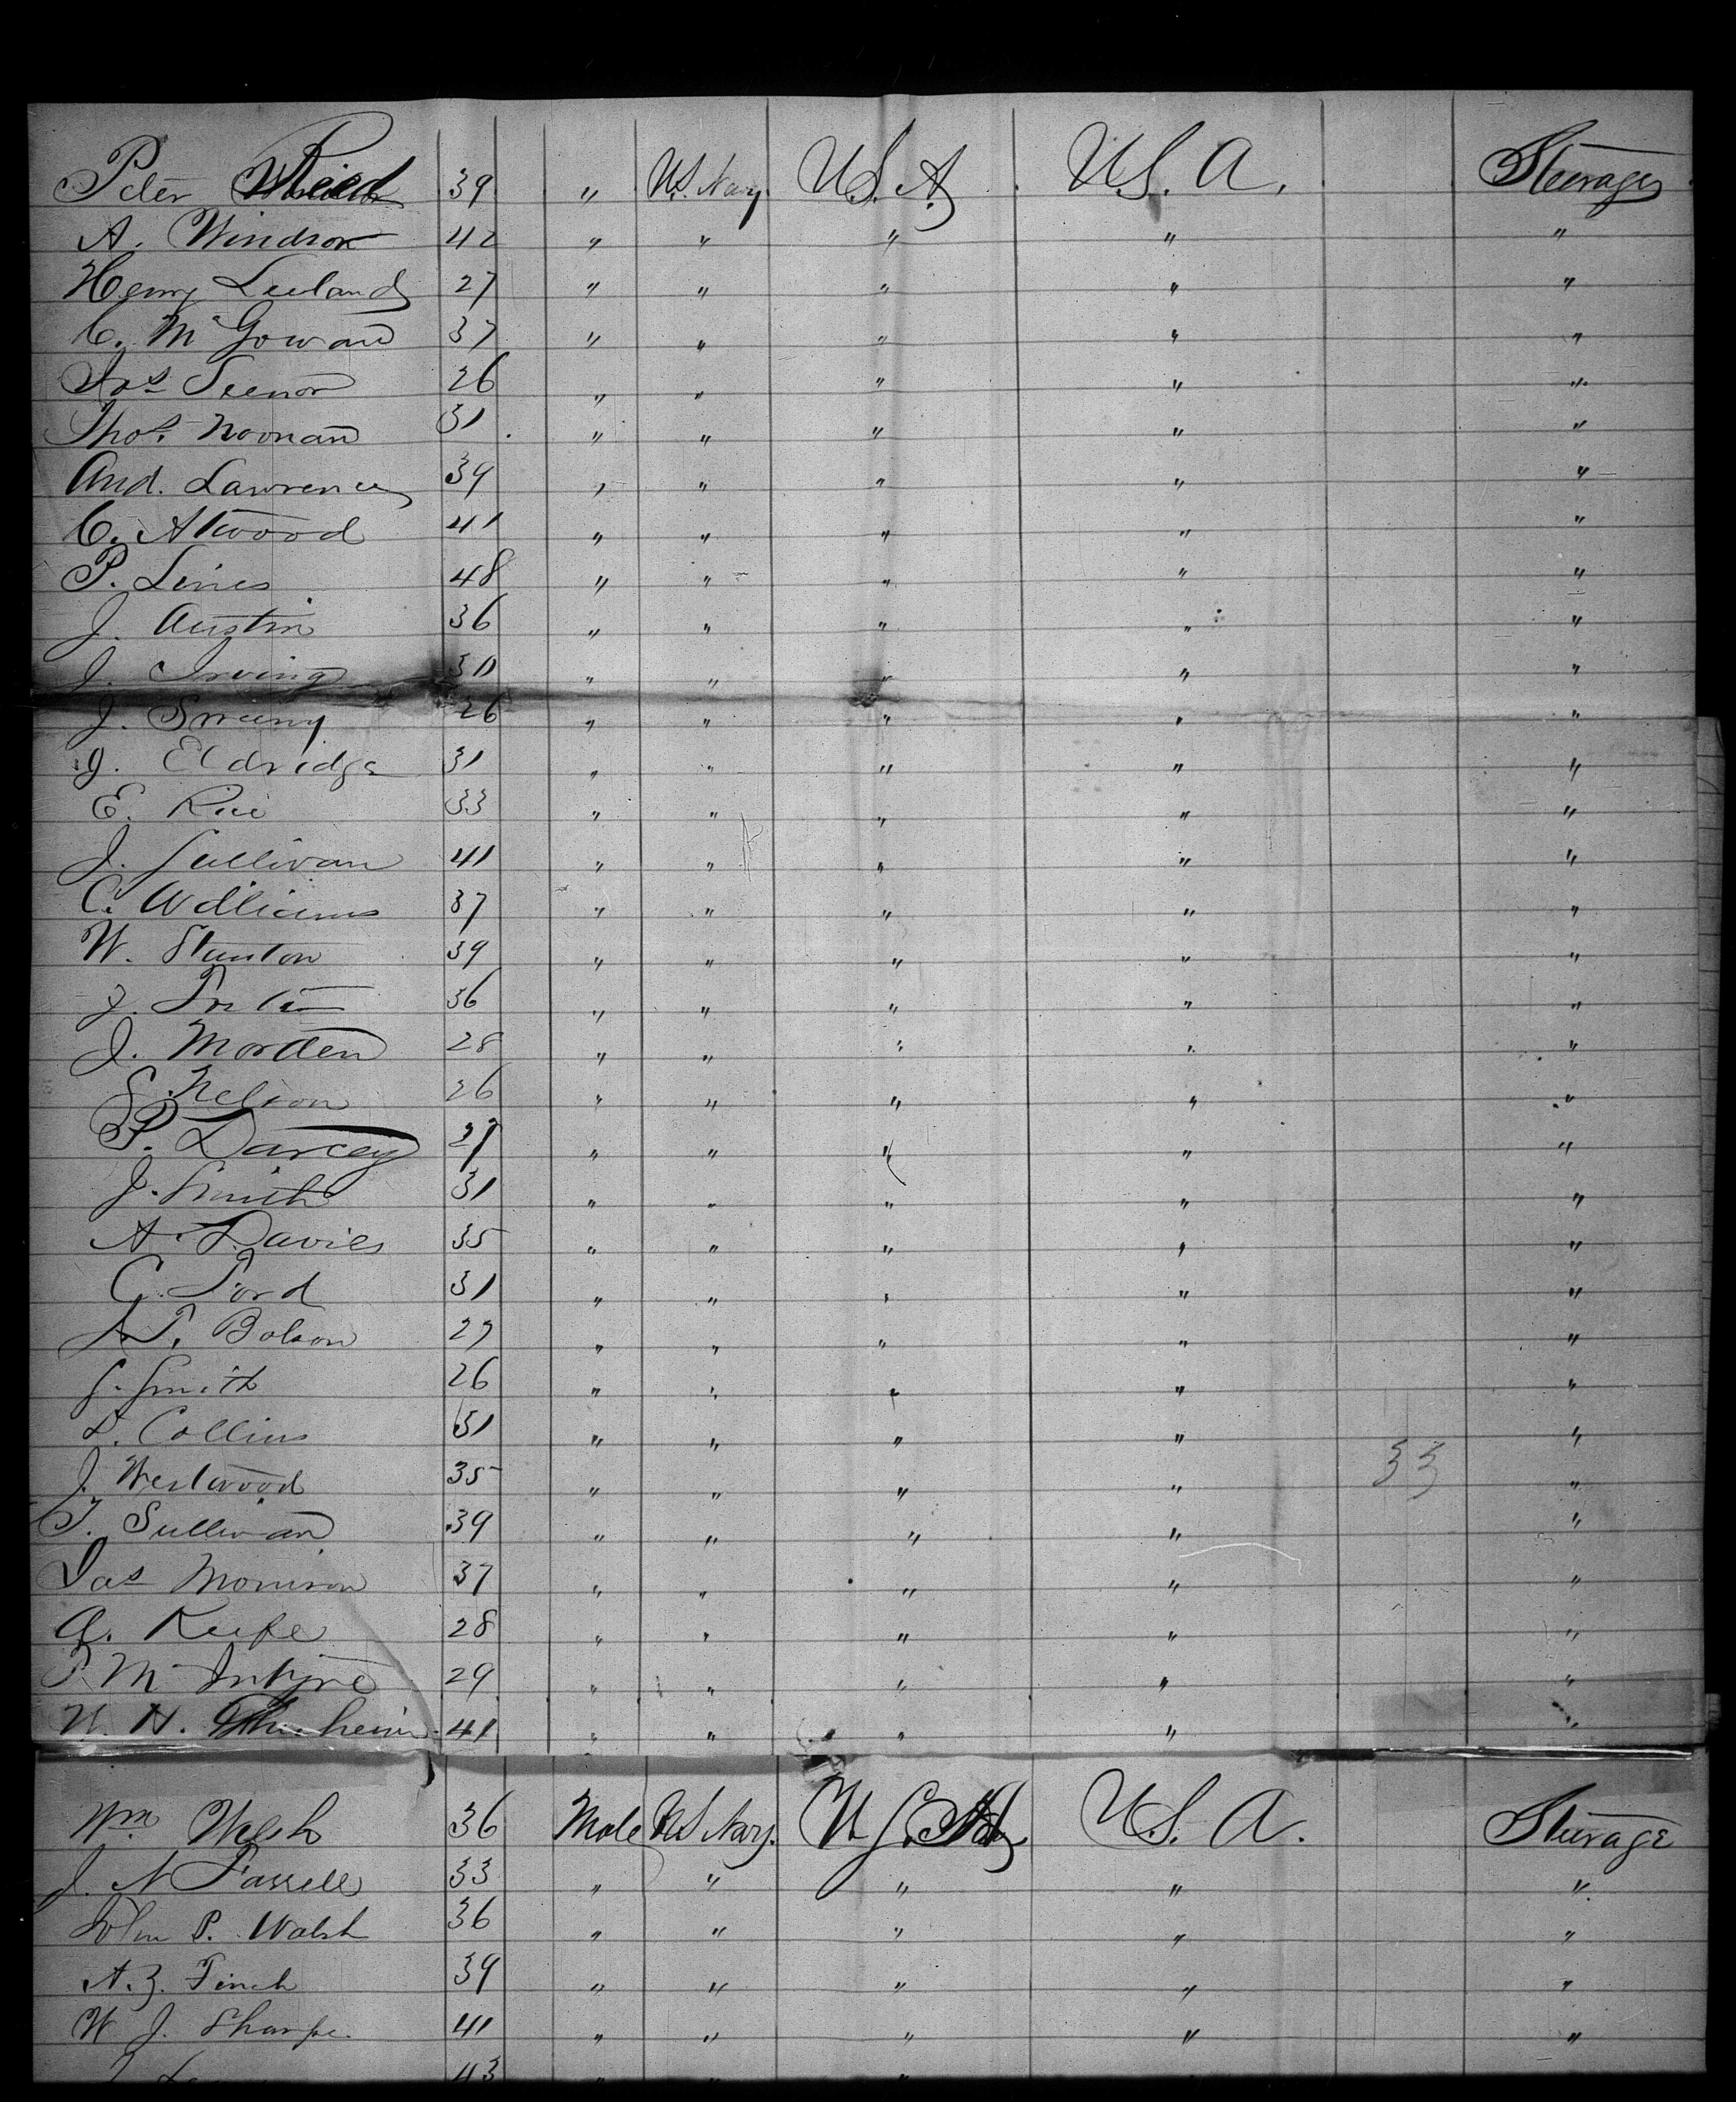 Peter Reed 39 " U.S. Navy U.S.A. U.S.A. Steerage
A. Windsor 42 " " " " "
Henry Leeland 27 " " " " "
C. McGowan 37 " " " " "
Jas 26 " " " " "
Thos. Noonan 31 " " " " "
And. Lawrence 39 " " " " "
C. Atwood 41 " " " " "
P. Lines 48 " " " " "
J. Austin 36 " " " " "
J. Irving 30 " " " " "
J. Sweeny 26 " " " " "
J. Eldridge 31 " " " " "
E. Rice 33 " " " " "
J. Sullivan 41 " " " " "
C. Williams 37 " " " " "
W. Stanton 39 " " " " "
J. 36 " " " " "
J. Morden 28 " " " " "
S. Nelson 26 " " " " "
P. Darcey 27 " " " " "
J. Smith 31 " " " " "
A. Davies 35 " " " " "
C. Ford 31 " " " " "
T. Bolson 27 " " " " "
J. Smith 26 " " " " "
D. Collins 31 " " " " "
J. Westwood 35 " " " " 33 "
T. Sullivan 39 " " " " "
Jas Morrison 37 " " " " "
A. Keefe 28 " " " " "
P. McIntyre 29 " " " " "
W. H. 41 " " " " "
Wm. Welsh 36 Male US Navy. U.S.A. U.S.A. Steerage
J. N. Farrell 33 " " " " "
John P. Walsh 36 " " " " "
A. Z. Finch 39 " " " " "
W. J. Sharpe. 41 " " " " "
43 " " "